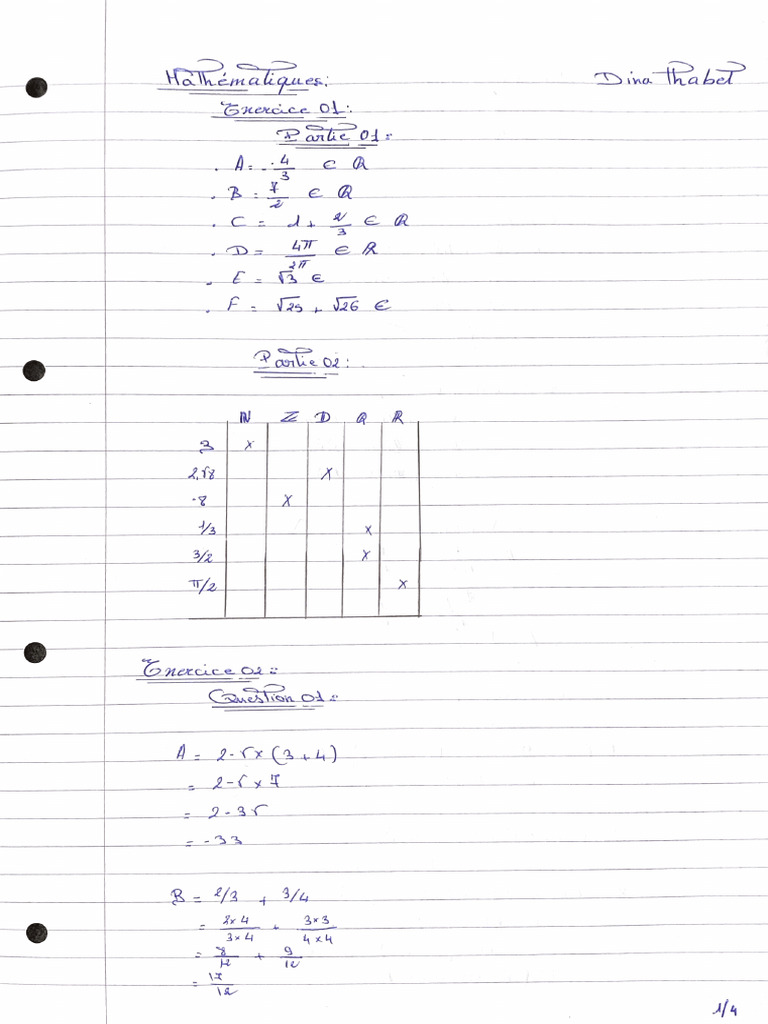 Mathématiques: Dina Thabet
Exercice 01:
Partie 01:
. A = -4/3 ∈ Q
. B = 7/2 ∈ Q
. C = 1 + 2/3 ∈ Q
. D = 4π/2π ∈ R
. E = √3 ∈
. F = √25 + √26 ∈
Partie 02:
N Z D Q R
3 x
2,58 x
-8 x
1/3 x
3/2 x
π/2 x
Exercice 02:
Question 01:
A = 2-5x(3+4)
= 2-5x7
= 2-35
= -33
B = 2/3 + 3/4
= 2x4/3x4 + 3x3/4x4
= 8/12 + 9/12
= 17/12
1/4